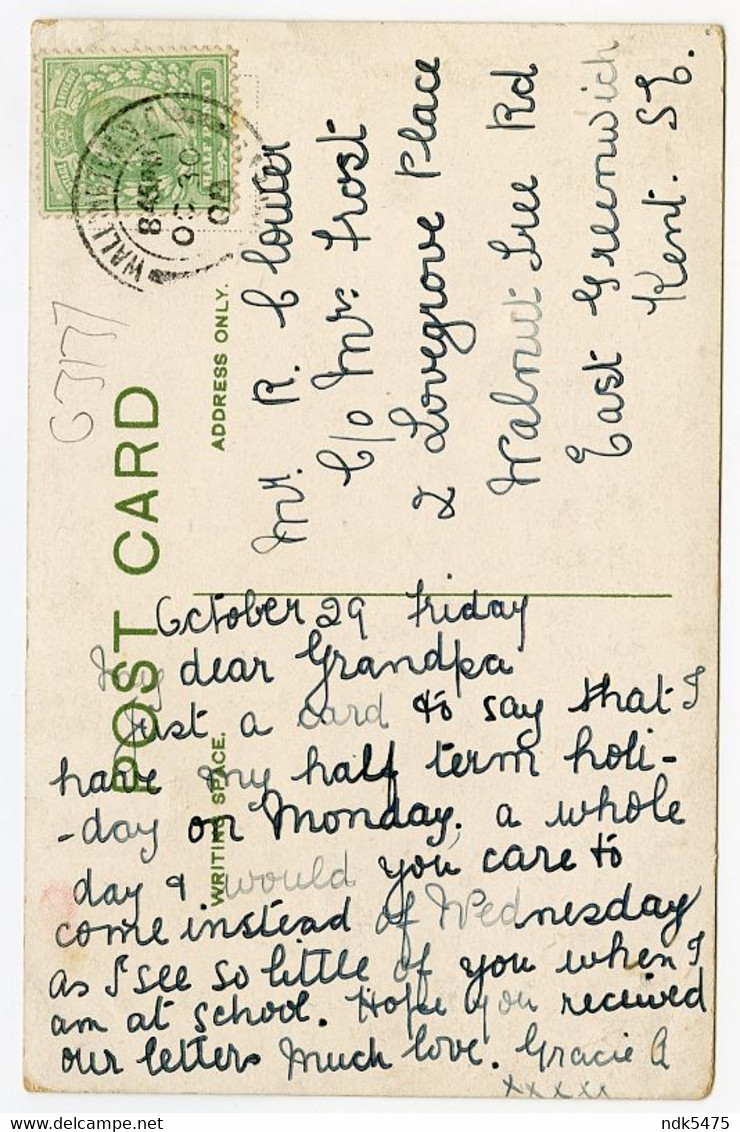 POST CARD
WRITING SPACE.
ADDRESS ONLY.
HALF PENNY
OC 30
09
6717
Mr. R. Clouter
C/o Mr. Frost
2 Lovegrove Place
Walnut Tree Rd
East Greenwich
Kent. S.E.
October 29 Friday
My dear Grandpa
Just a card to say that I
have my half term holi-
-day on Monday, a whole
day & would you care to
come instead of Wednesday
as I see so little of you when I
am at school. Hope you received
our letters Much love. Gracie A
xxxxx
ndk5475
delcampe.net